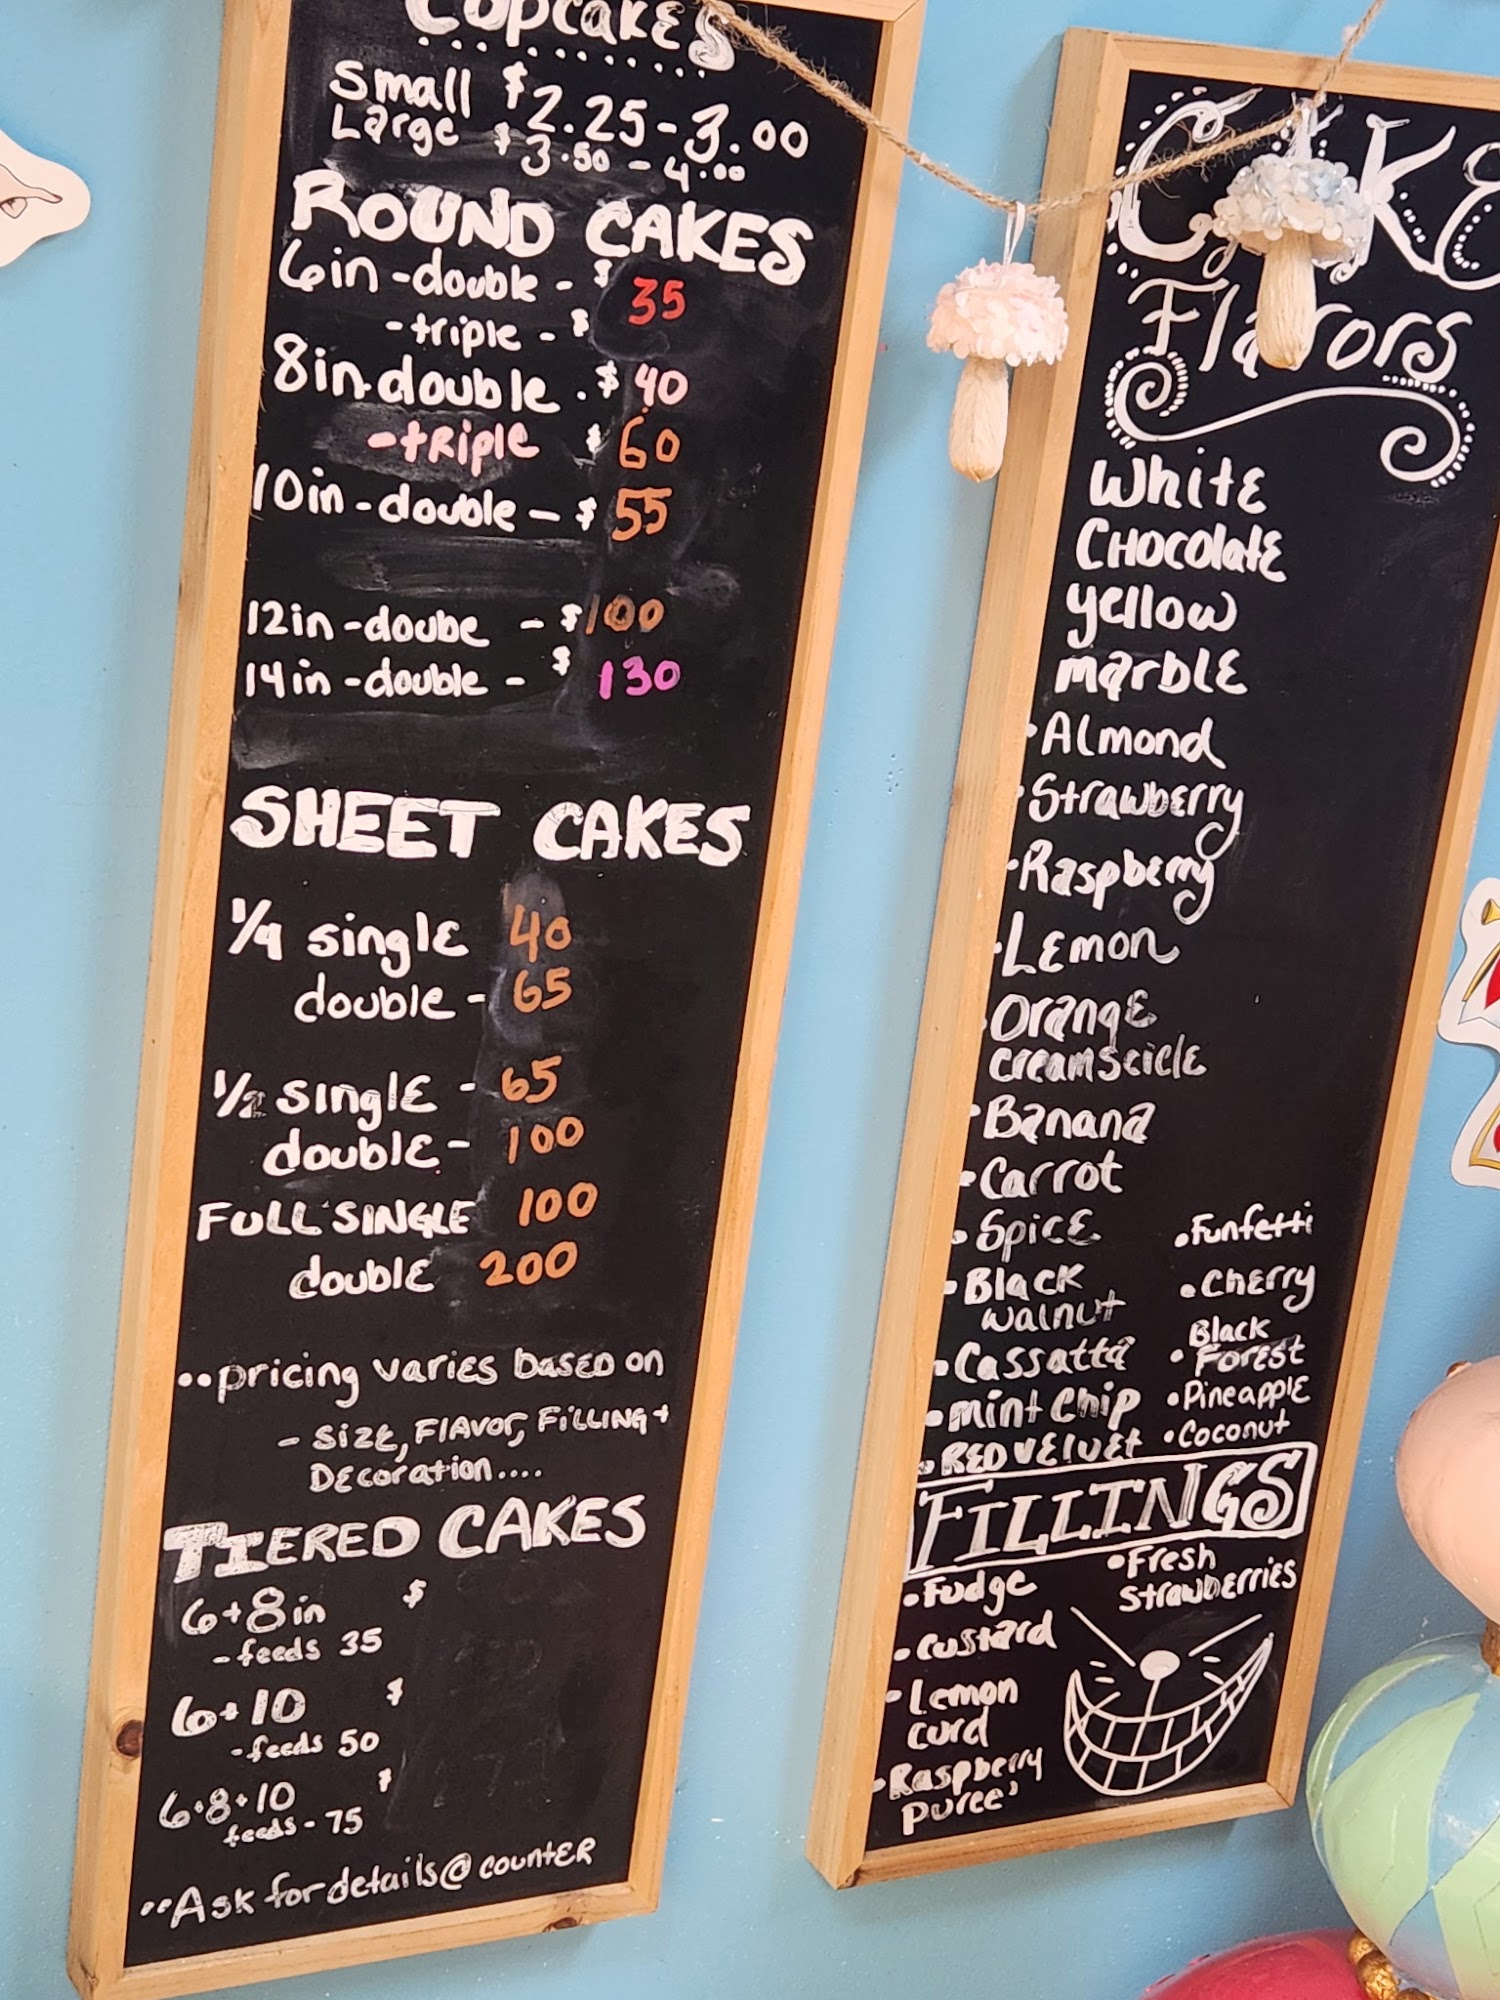 Cupcakes
Small $2.25-3.00
Large $3.50-4.00
ROUND CAKES
6in-double-$ 35
-triple-$
8in-double.$ 40
-tRiple $ 60
10in-double-$ 55
12in-doube -$100
14in-double- $ 130
SHEET CAKES
1/4 single 40
double- 65
1/2 single- 65
double- 100
FULL SINGLE 100
double 200
••pricing varies based on
- Size, Flavor, Filling +
Decoration....
TIERED CAKES
6+8in $
-feeds 35
6+10 $
-feeds 50
6•8•10 $
feeds-75
••Ask for details@counter
CAKE
Flavors
White
Chocolate
yellow
marble
•Almond
•Strawberry
•Raspberry
•Lemon
•Orange
creamscicle
•Banana
•Carrot
•Spice
•Black
walnut
•Cassatta
•mint chip
•RED VELVET
•Funfetti
•Cherry
•Black
Forest
•Pineapple
•Coconut
FILLINGS
•Fudge
•custard
•Lemon
curd
•Raspberry
puree'
•Fresh
Strawberries